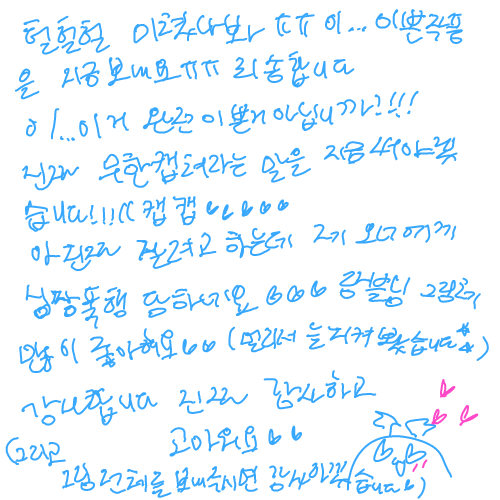 헐헐헐 이걸 나봐 ㅠㅠ 이... 이쁜작품
을 지금보내요ㅠㅠ 죄송합니다
이!...이거 완존이쁜거아닙니까?!!!
진짜 무한캡쳐라는 말을 지금써야겠
습니다!!!(( 캡캡
아 진짜 잘려고 하는데 그거 보고에게
심장폭행 당하네요 님 그림도
많이 좋아해요 (멀리서 늘지켜봤습니다*)
감사합니다 진짜 감사하고
고마워요
(그리고
그림전체를 보내주시면 감사하겠습니다)